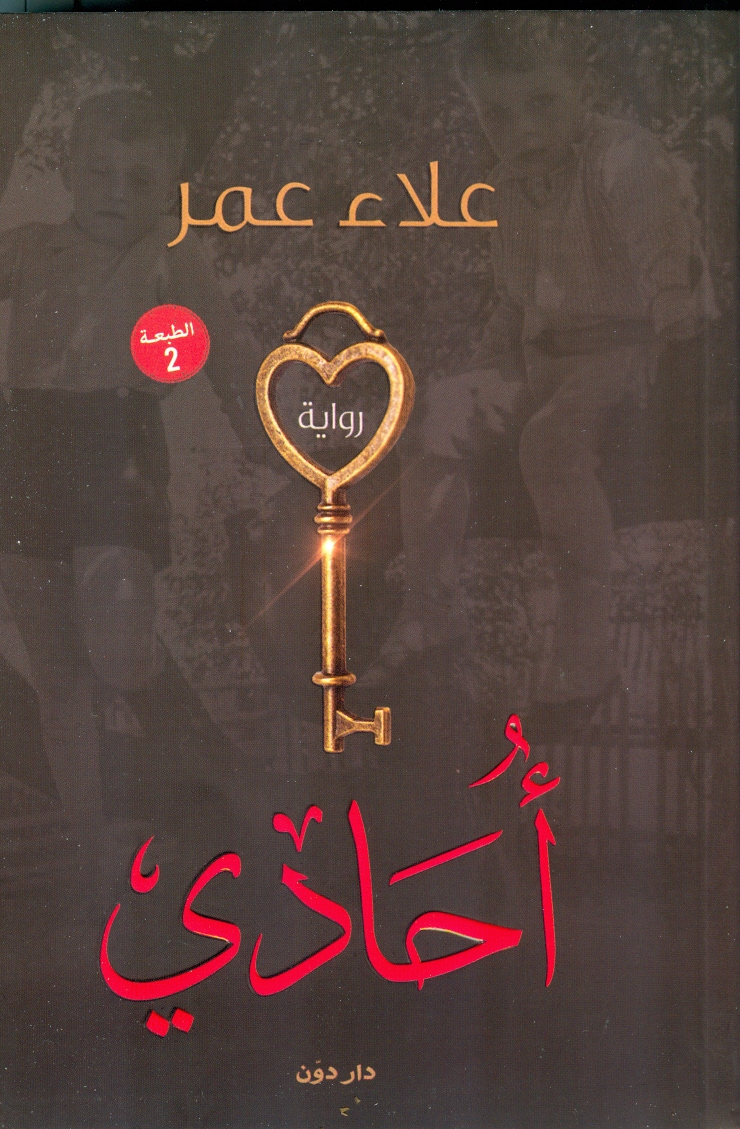 علاء عمر
الطبعة
2
رواية
أُحادي
دار دوّن